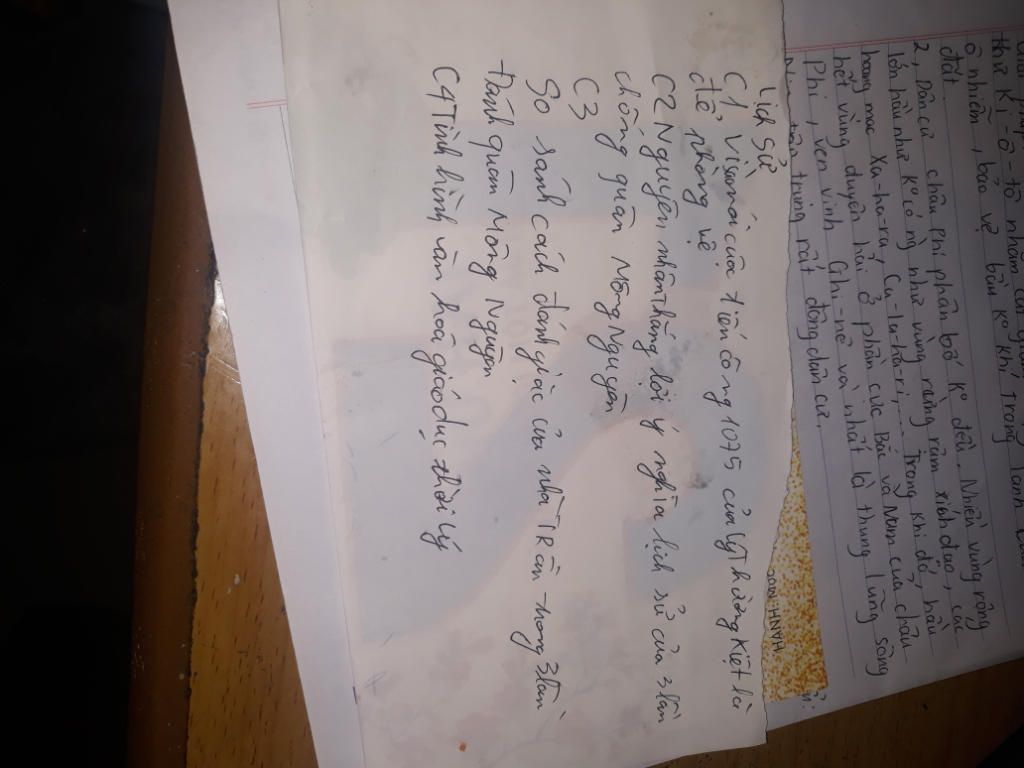 thứ Kí-ô-tô nhằm cắt giảm
ô nhiễm, bảo vệ bầu Kº Khí trong
đất.
2, Dân cư châu phi phân bố Kº đều. Nhiều vùng rộng
lớn hầu như Kº có ng như vùng rừng rậm xích đạo, các
hoang mạc Xa-ha-ra, Ca-la-ha-ri,.... Trong khi đó, hầu
hết vùng duyên hải ở phần cực Bắc và Nam của châu
Phi, ven vịnh Ghi-nê và nhất là thung lũng sông
tập trung rất đông dân cư.
HẠNH PHÚC
Lịch Sử
C1 Vì sao nói của tiến công 1075 của Lý Thường Kiệt là
để phòng vệ
C2 Nguyên nhân thắng lợi ý nghĩa lịch sử của 3 lần
chống quân Mông Nguyên
C3
So sánh cách đánh giặc của nhà TRần trong 3 lần
Đánh quân Mông Nguyên
C4 Tình hình văn hoá giáo dục thời Lý